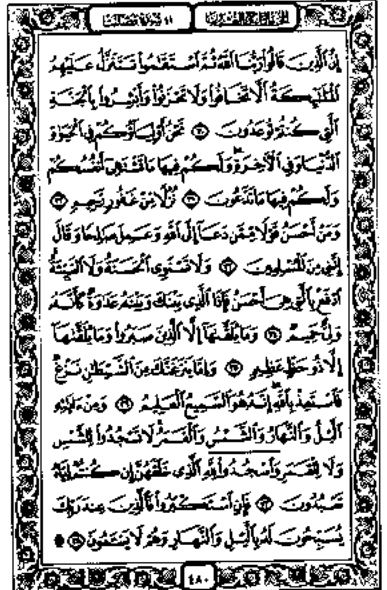 الجزء الرابع والعشرون
٤١ سورة فصلت
إِنَّ ٱلَّذِينَ قَالُوا۟ رَبُّنَا ٱللَّهُ ثُمَّ ٱسْتَقَٰمُوا۟ تَتَنَزَّلُ عَلَيْهِمُ
ٱلْمَلَٰٓئِكَةُ أَلَّا تَخَافُوا۟ وَلَا تَحْزَنُوا۟ وَأَبْشِرُوا۟ بِٱلْجَنَّةِ
ٱلَّتِى كُنتُمْ تُوعَدُونَ ٣٠ نَحْنُ أَوْلِيَآؤُكُمْ فِى ٱلْحَيَوٰةِ
ٱلدُّنْيَا وَفِى ٱلْءَاخِرَةِ وَلَكُمْ فِيهَا مَا تَشْتَهِىٓ أَنفُسُكُمْ
وَلَكُمْ فِيهَا مَا تَدَّعُونَ ٣١ نُزُلًا مِّنْ غَفُورٍ رَّحِيمٍ ٣٢
وَمَنْ أَحْسَنُ قَوْلًا مِّمَّن دَعَآ إِلَى ٱللَّهِ وَعَمِلَ صَٰلِحًا وَقَالَ
إِنَّنِى مِنَ ٱلْمُسْلِمِينَ ٣٣ وَلَا تَسْتَوِى ٱلْحَسَنَةُ وَلَا ٱلسَّيِّئَةُ
ٱدْفَعْ بِٱلَّتِى هِىَ أَحْسَنُ فَإِذَا ٱلَّذِى بَيْنَكَ وَبَيْنَهُۥ عَدَٰوَةٌ كَأَنَّهُۥ
وَلِىٌّ حَمِيمٌ ٣٤ وَمَا يُلَقَّىٰهَآ إِلَّا ٱلَّذِينَ صَبَرُوا۟ وَمَا يُلَقَّىٰهَآ
إِلَّا ذُو حَظٍّ عَظِيمٍ ٣٥ وَإِمَّا يَنزَغَنَّكَ مِنَ ٱلشَّيْطَٰنِ نَزْغٌ
فَٱسْتَعِذْ بِٱللَّهِ إِنَّهُۥ هُوَ ٱلسَّمِيعُ ٱلْعَلِيمُ ٣٦ وَمِنْ ءَايَٰتِهِ
ٱلَّيْلُ وَٱلنَّهَارُ وَٱلشَّمْسُ وَٱلْقَمَرُ لَا تَسْجُدُوا۟ لِلشَّمْسِ
وَلَا لِلْقَمَرِ وَٱسْجُدُوا۟ لِلَّهِ ٱلَّذِى خَلَقَهُنَّ إِن كُنتُمْ إِيَّاهُ
تَعْبُدُونَ ٣٧ فَإِنِ ٱسْتَكْبَرُوا۟ فَٱلَّذِينَ عِندَ رَبِّكَ
يُسَبِّحُونَ لَهُۥ بِٱلَّيْلِ وَٱلنَّهَارِ وَهُمْ لَا يَسْـَٔمُونَ ٣٨
٤٨٠